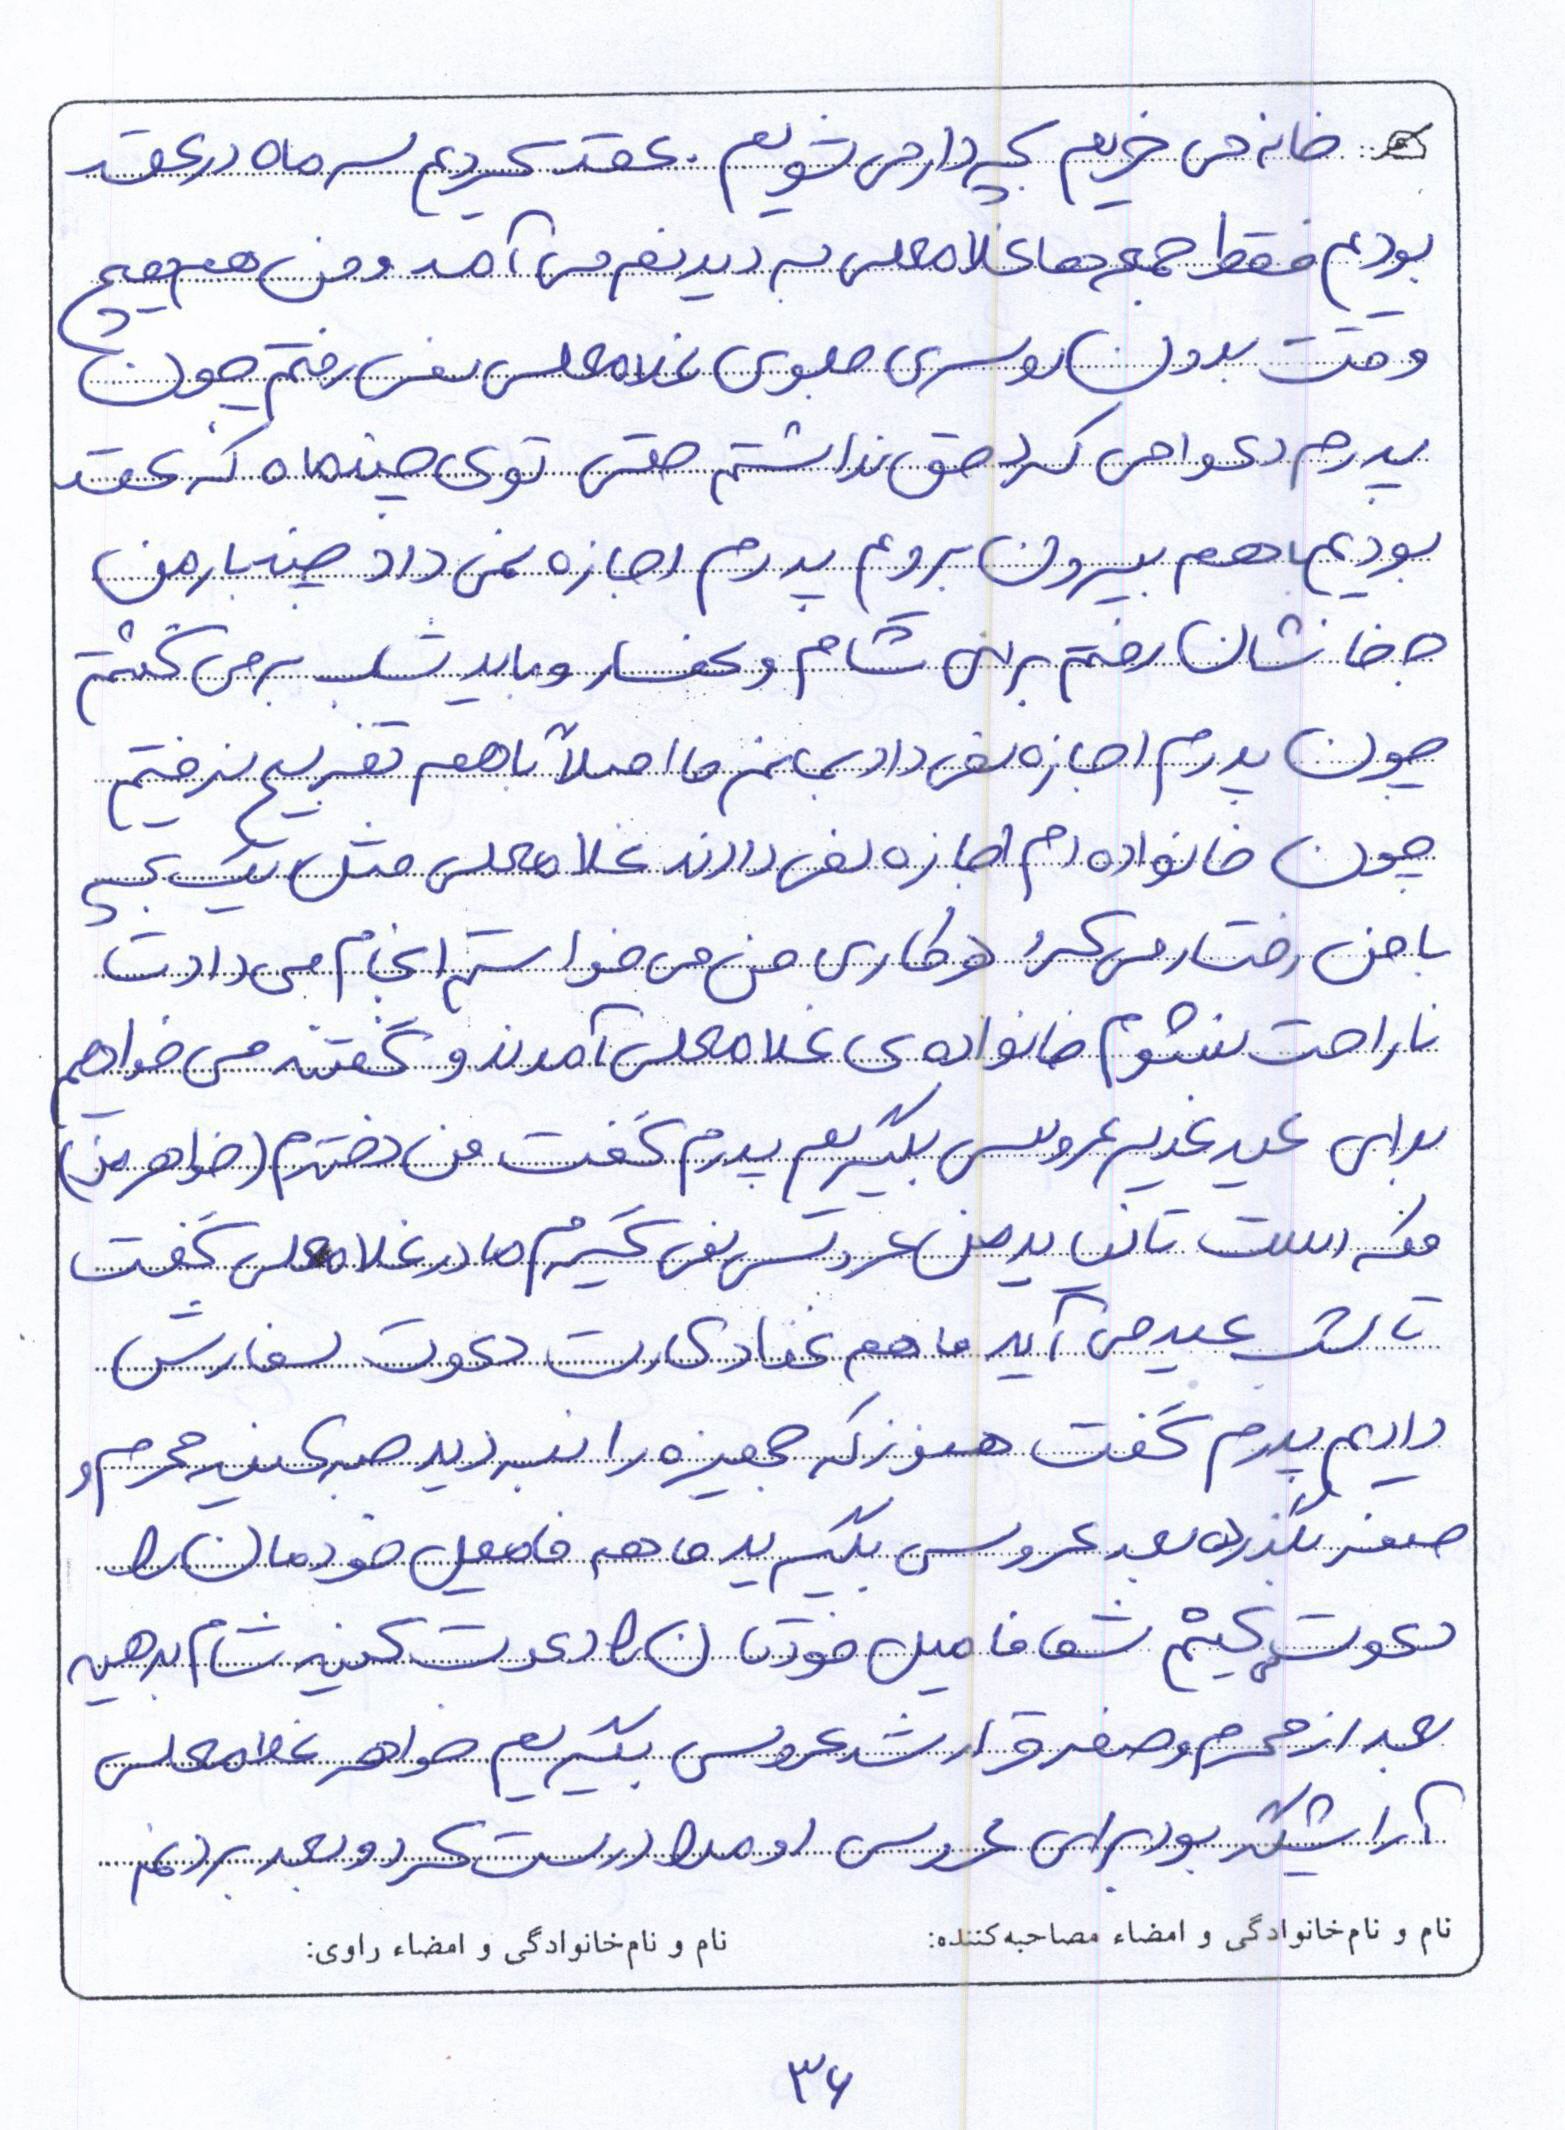 خانه می خریم بچه دار می شویم . عقد کردیم سه ماه در عقد
بودیم فقط جمعه ها غلامعلی به دیدنم می آمد و من هم هیچ
وقت بدون روسری جلوی غلامعلی نمی رفتم چون
پدرم دعوام می کرد حق نداشتم حتی توی چند ماه که عقد
بودیم باهم بیرون برویم پدرم اجازه نمی داد چند بار من
خانشان رفتم برای شام و نهار و باید شب برمی گشتم
چون پدرم اجازه نمی داد بمانم ما اصلاً باهم تفریح نرفتیم
چون خانواده ام اجازه نمی دادند غلامعلی مثل یک بچه
با من رفتار می کرد هرکاری من می خواستم انجام می داد تا
ناراحت نشوم خانواده ی غلامعلی آمدند و گفتند می خواهیم
برای عید غدیر عروسی بگیریم پدرم گفت من دخترم (خواهر من)
مکه است تا نیاید من عروسی نمی گیرم مادر غلامعلی گفت
تا شب عید می آید ما هم غذا و کارت دعوت سفارش
دادیم پدرم گفت هنوز که جهیزه را نبردید صبر کنید محرم و
صفر بگذرد بعد عروسی بگیرید ما هم فامیل خودمان را
دعوت می کنیم شما فامیل خودتان را دعوت کنید شام بدهید
بعد از محرم و صفر قرار شد عروسی بگیریم خواهر غلامعلی
آرایشگر بود برای عروسی او مرا درست کرد و بعد بردنم
نام و نام‌خانوادگی و امضاء مصاحبه‌کننده: نام و نام‌خانوادگی و امضاء راوی:
۳۶